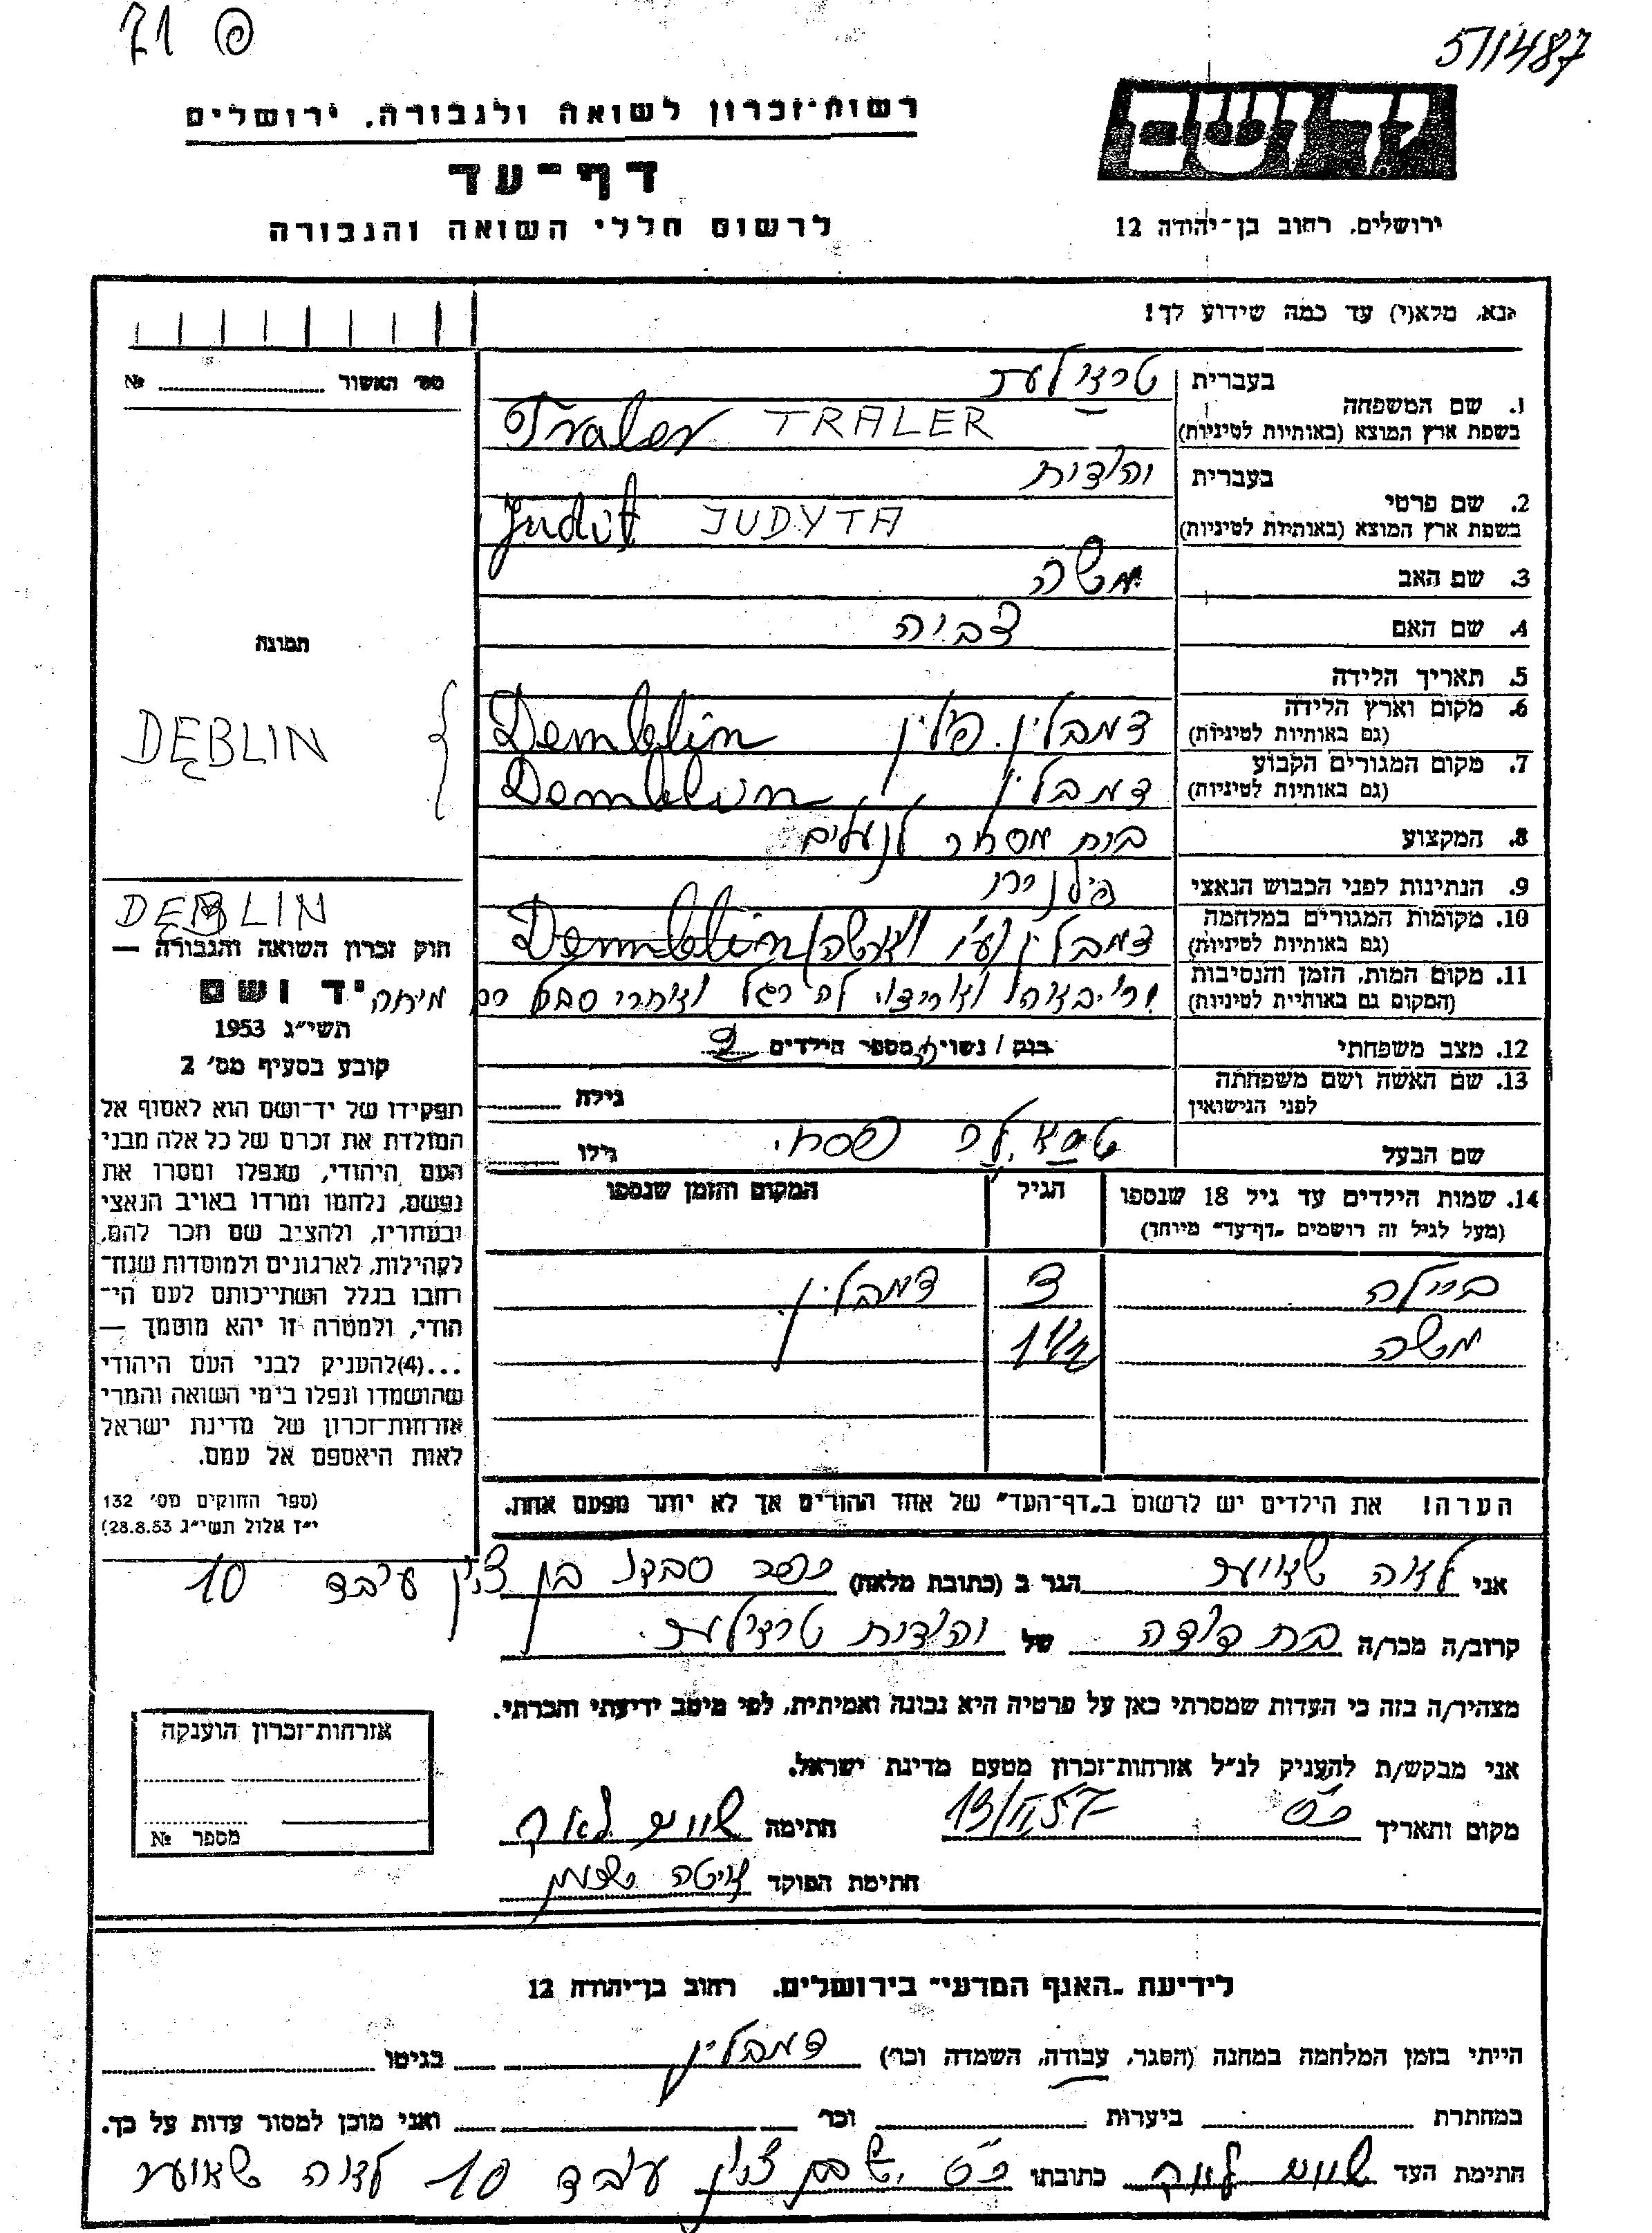 71 פ
5/1487
רשות-זכרון לשואה ולגבורה, ירושלים
דף-עד
לרשום חללי השואה והגבורה
ידושם
ירושלים, רחוב בן-יהודה 12
נא, מלא(י) עד כמה שידוע לך!
מס' האשור №
1. שם המשפחה
בעברית
בשפת ארץ המוצא (באותיות לטיניות)
Traler TRALER
בעברית יהודית
2. שם פרטי
בשפת ארץ המוצא (באותיות לטיניות)
Judit JUDYTA
3. שם האב משה
4. שם האם צביה
תמונה
5. תאריך הלידה
6. מקום וארץ הלידה
(גם באותיות לטיניות)
דמבלין. פולין Demblin
DĘBLIN {
7. מקום המגורים הקבוע
(גם באותיות לטיניות)
דמבלין Demblin
8. המקצוע בית מסחר לנעלים
9. הנתינות לפני הכבוש הנאצי
10. מקומות המגורים במלחמה
(גם באותיות לטיניות)
דמבלין Demblin
DĘBLIN
11. מקום המות, הזמן והנסיבות
(המקום גם באותיית לטיניות)
מיתה
12. מצב משפחתי רווק / נשוי מספר הילדים 2
13. שם האשה ושם משפחתה
לפני הנישואין
גילה
שם הבעל
גילו
14. שמות הילדים עד גיל 18 שנספו
(מעל לגיל זה רושמים "דף-עד" מיוחד)
הגיל
המקום והזמן שנספו
ביילה 3 דמבלין
משה 1 1/2
הערה! את הילדים יש לרשום ב"דף-העד" של אחד ההורים אך לא יותר מפעם אחת.
חוק זכרון השואה והגבורה —
יד ושם
תשי״ג 1953
קובע בסעיף מס׳ 2
תפקידו של יד־ושם הוא לאסוף אל
המולדת את זכרם של כל אלה מבני
העם היהודי, שנפלו ומסרו את
נפשם, נלחמו ומרדו באויב הנאצי
ובעוזריו, ולהציב שם וזכר להם,
לקהילות, לארגונים ולמוסדות שנח־
רבו בגלל השתייכותם לעם הי־
הודי, ולמטרה זו יהא מוסמך —
...(4)להעניק לבני העם היהודי
שהושמדו ונפלו בימי השואה והמרי
אזרחות־זכרון של מדינת ישראל
לאות היאספם אל עמם.
(ספר החוקים מס׳ 132
י״ז אלול תשי״ג 28.8.53)
אני לאה הגר ב (כתובת מלאה) כפר סבא בן ציון 10
קרוב/ה מכר/ה בת דודה של יהודית
מצהיר/ה בזה כי העדות שמסרתי כאן על פרטיה היא נכונה ואמיתית, לפי מיטב ידיעתי והכרתי.
אני מבקש/ת להעניק לנ״ל אזרחות־זכרון מטעם מדינת ישראל.
מקום ותאריך כ״ס 57 חתימה
חתימת הפוקד
אזרחות־זכרון הוענקה
מספר №
לידיעת "האגף המדעי" בירושלים, רחוב בן־יהודה 12
הייתי בזמן המלחמה במחנה (הסגר, עבודה, השמדה וכר׳) דמבלין בגיטו
במחתרת ביערות וכר׳ ואני מוכן למסור עדות על כך.
חתימת העד כתובתו כ״ס 10 לאה